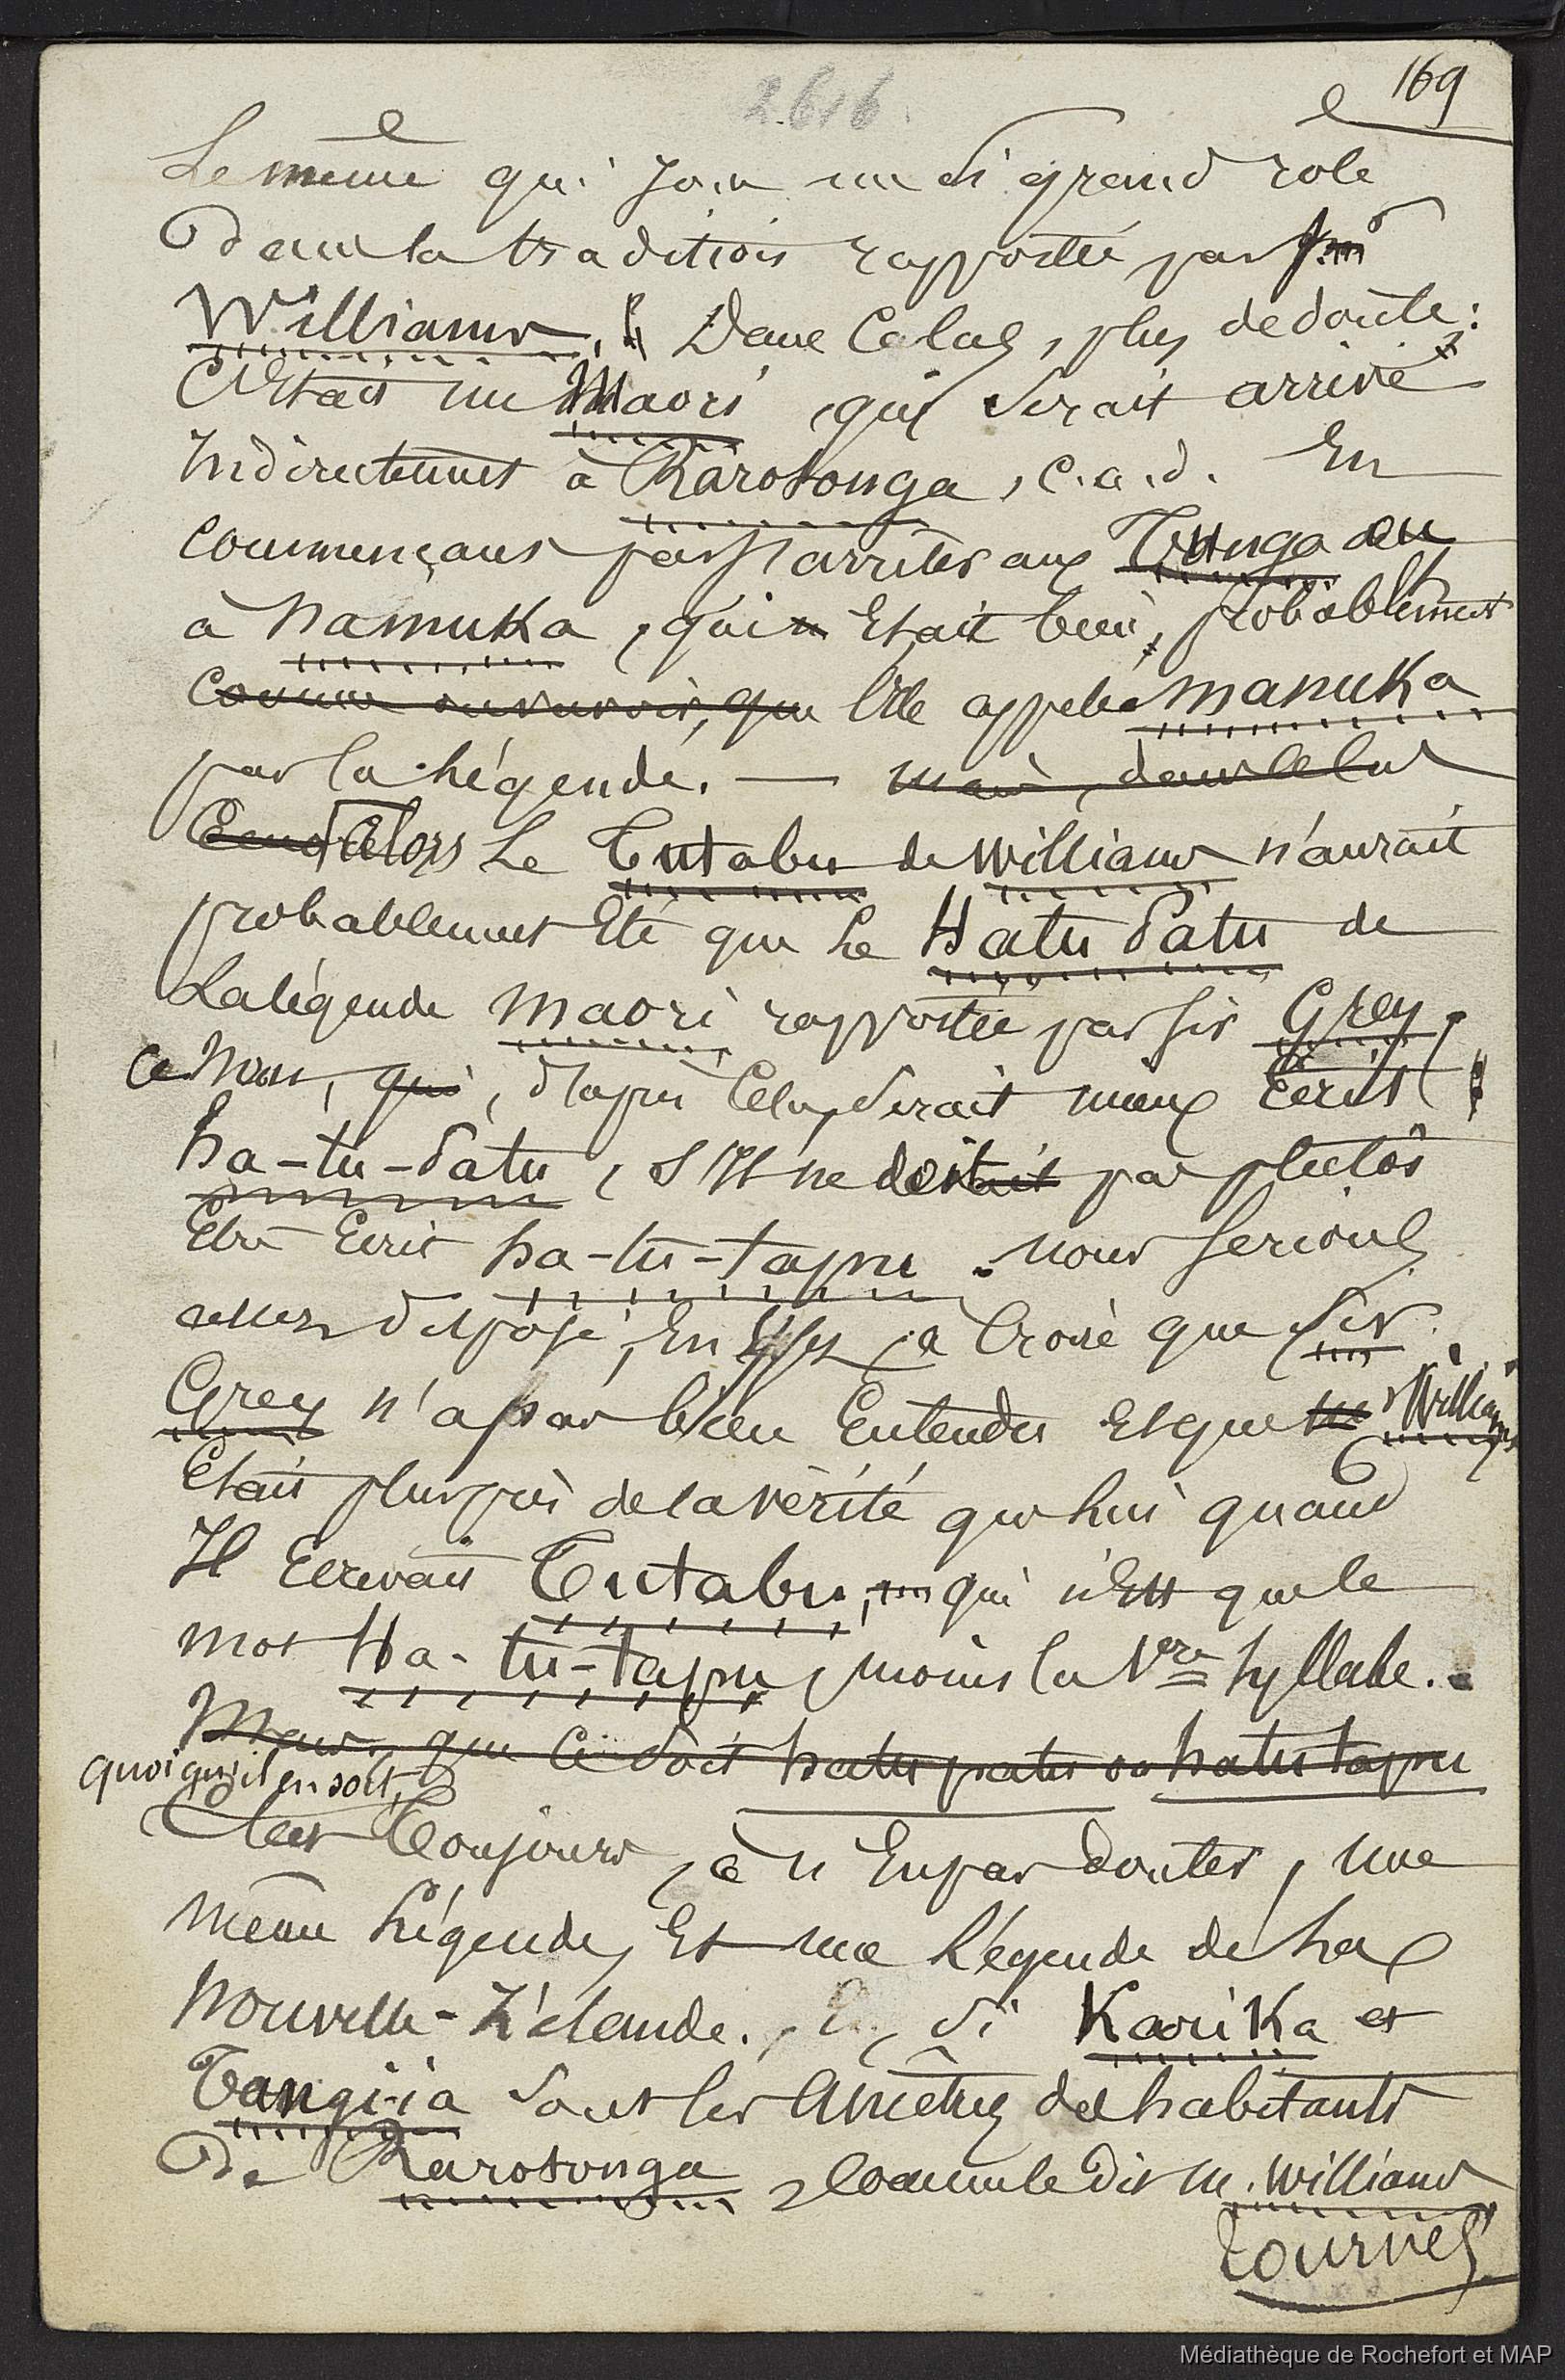 169
2616
Le même qui joua un si grand role
dans la tradition rapportée par
Williams. Dans ce cas, plus de doute :
C'était un Maori qui serait arrivé
indirectement à Rarotonga, c.a.d. En
commençant par s'arrêter aux Tunga ou
à namuka, qui était bien, probablement
l'ile appelée manuka
par la légende. — mais, dans ce cas
alors Le Tutabu de Williams n'aurait
probablement été que Le Hatu Patu de
La légende maori rapportée par Sir Grey,
ce nom, qui, d'après cela, serait mieux Ecrit
ha-tu-patu, s'Il ne doit pas plutôt
Etre Ecrit ha-tu-tapu. nous serions
assez disposé, En effet, à Croire que Sir
Grey n'a pas bien Entendu et que Williams
Etait plus près de la vérité que lui quand
Il Ecrivait Tutabu, qui n'Est que le
mot Ha-tu-tapu, moins la 1ère Syllabe.
Mais, que ce soit hatupatu ou hatutapu
quoiqu'il en soit,
C'est Toujours, à n'En pas douter, une
même Légende, Et une Légende de La
Nouvelle-Zélande. Si Karika et
Tangi-ia sont les Ancêtres des habitants
De Rarotonga, comme le dit M. Williams
tournez
Médiathèque de Rochefort et MAP